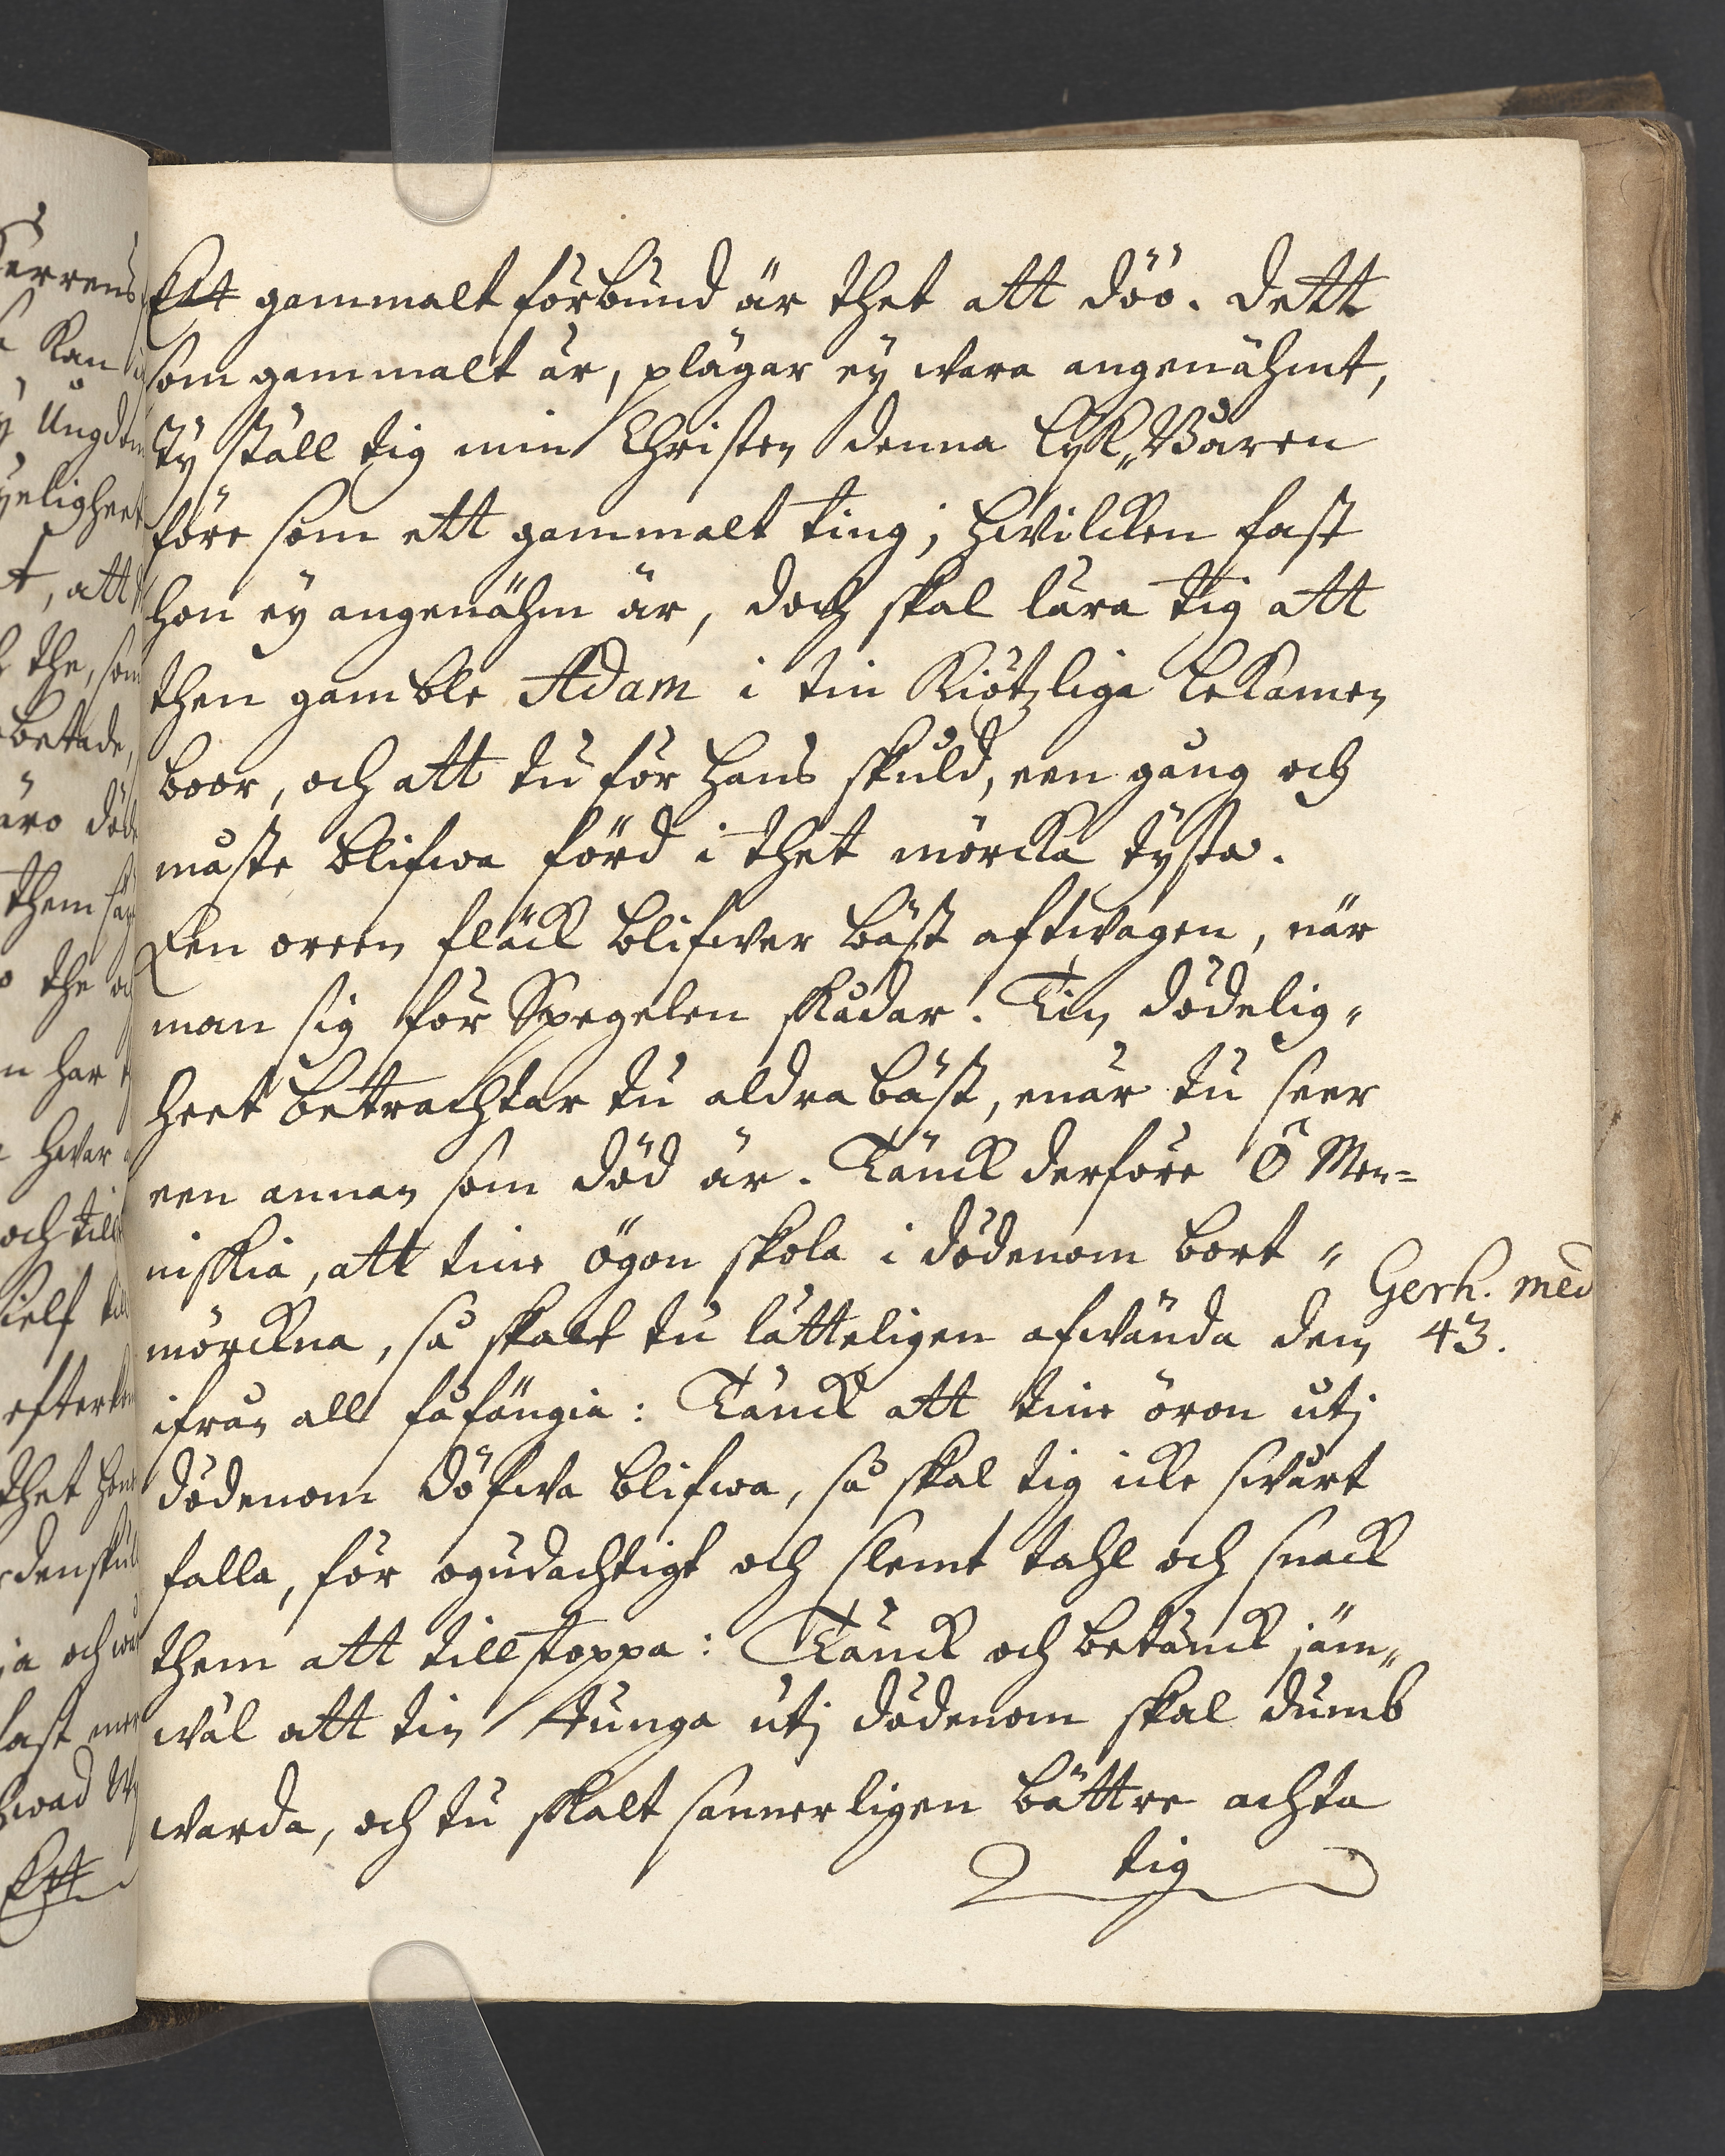 Ett gammalt förbund är thet att döö. Dett
som gammalt är, plägar ey wara angenähmt,
Ty ställ tig min Christen denna Lijk„Båren
före som ett gammalt ting; hwilcken fast
hon ey angenähm är, doch skal lära tig att
then gamble Adam i tin Kiötzliga Lekamen
boor, och att tu för hans skuld, een gång och
måste blifwa förd i thet mörcka tysta.
Een oreen fläck blifwer bäst aftwagen, när
man sig för Spegelen skådar. Tin dödelig„
heet betrachtar tu aldra bäst, enär tu seer
een annan som död är. Tänck derföre Ô Men=
niskia, att tine ögon skola i dödenom bort„
mörckna, så skalt tu lätteligen afwända dem
ifrån all fåfängia: Tänck att tine öron utj
dödenom döfwa blifwa, så skal tig icke swårt
falla, för ogudachtigt och slemt tahl och snack
them att tillstoppa: Tänck och betänck jäm„
wäl att tin tunga utj dödenom skal dumb
warda, och tu skalt sannerligen bättre achta
tig
Gerh. med
43.